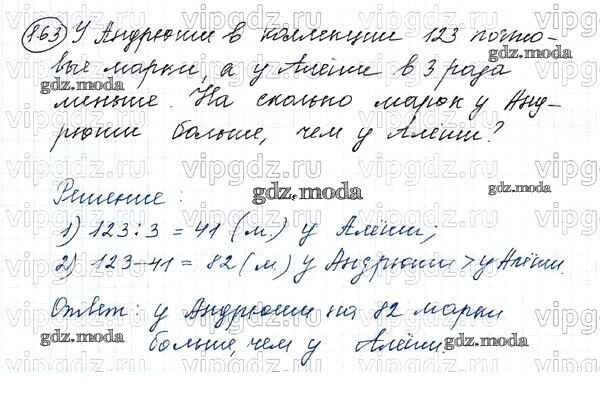 863 У Андрюши в коллекции 123 почто-
вые марки, а у Алёши в 3 раза
меньше. На сколько марок у Анд-
рюши больше, чем у Алёши?
Решение:
1) 123:3 = 41 (м.) у Алёши;
2) 123-41 = 82 (м) у Андрюши > у Алёши.
Ответ: у Андрюши на 82 марки
больше, чем у Алёши.